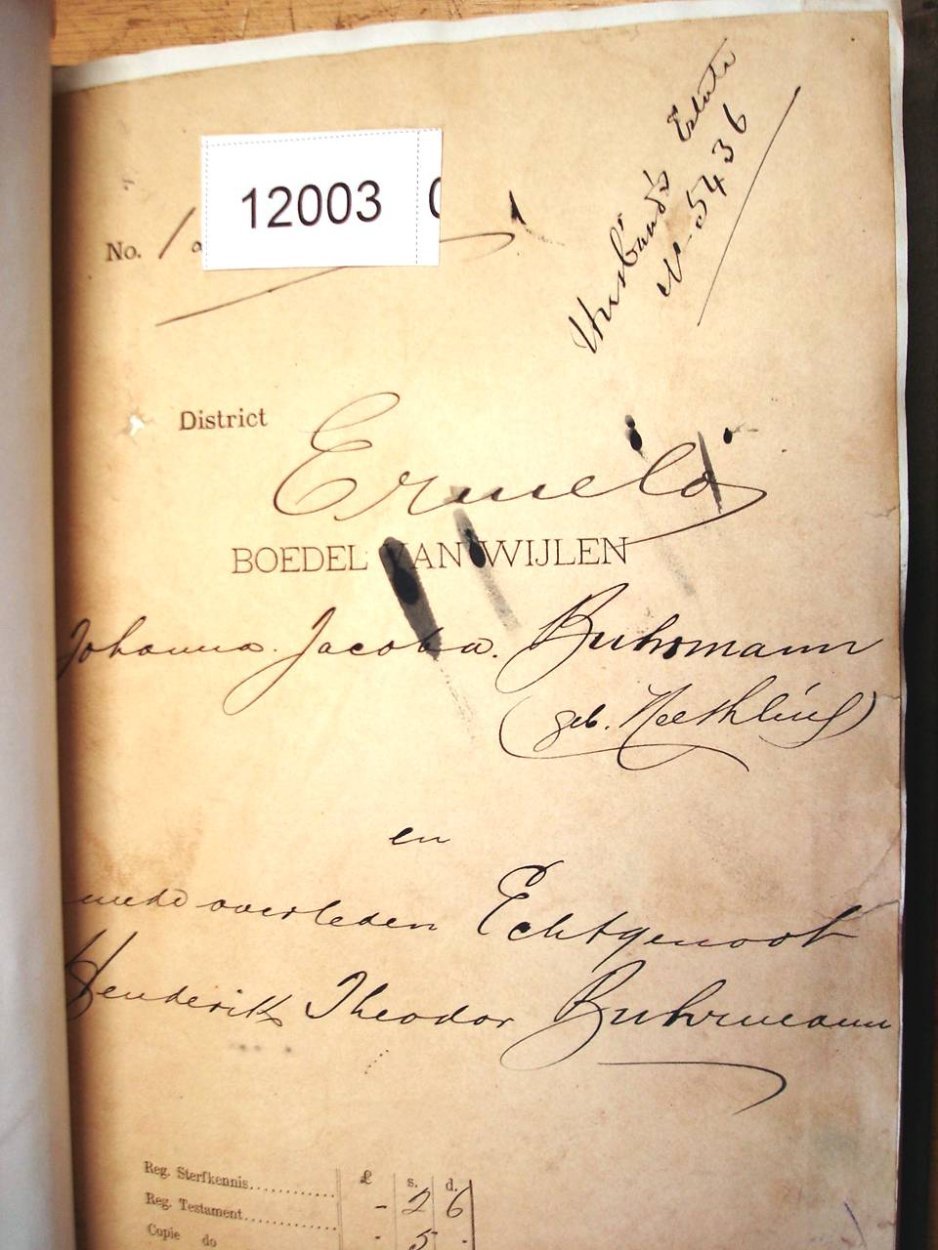 Husband's Estate
No. 5436
12003
No. 1
District Ermelo
BOEDEL VAN WIJLEN
Johanna Jacoba. Buhrmann
(geb. Neethling)
en
mede overleden Echtgenoot
Henderik Theodor Buhrmann
£ s. d.
Reg. Sterfkennis............
Reg. Testament............ - 2 6
Copie do - 5 -